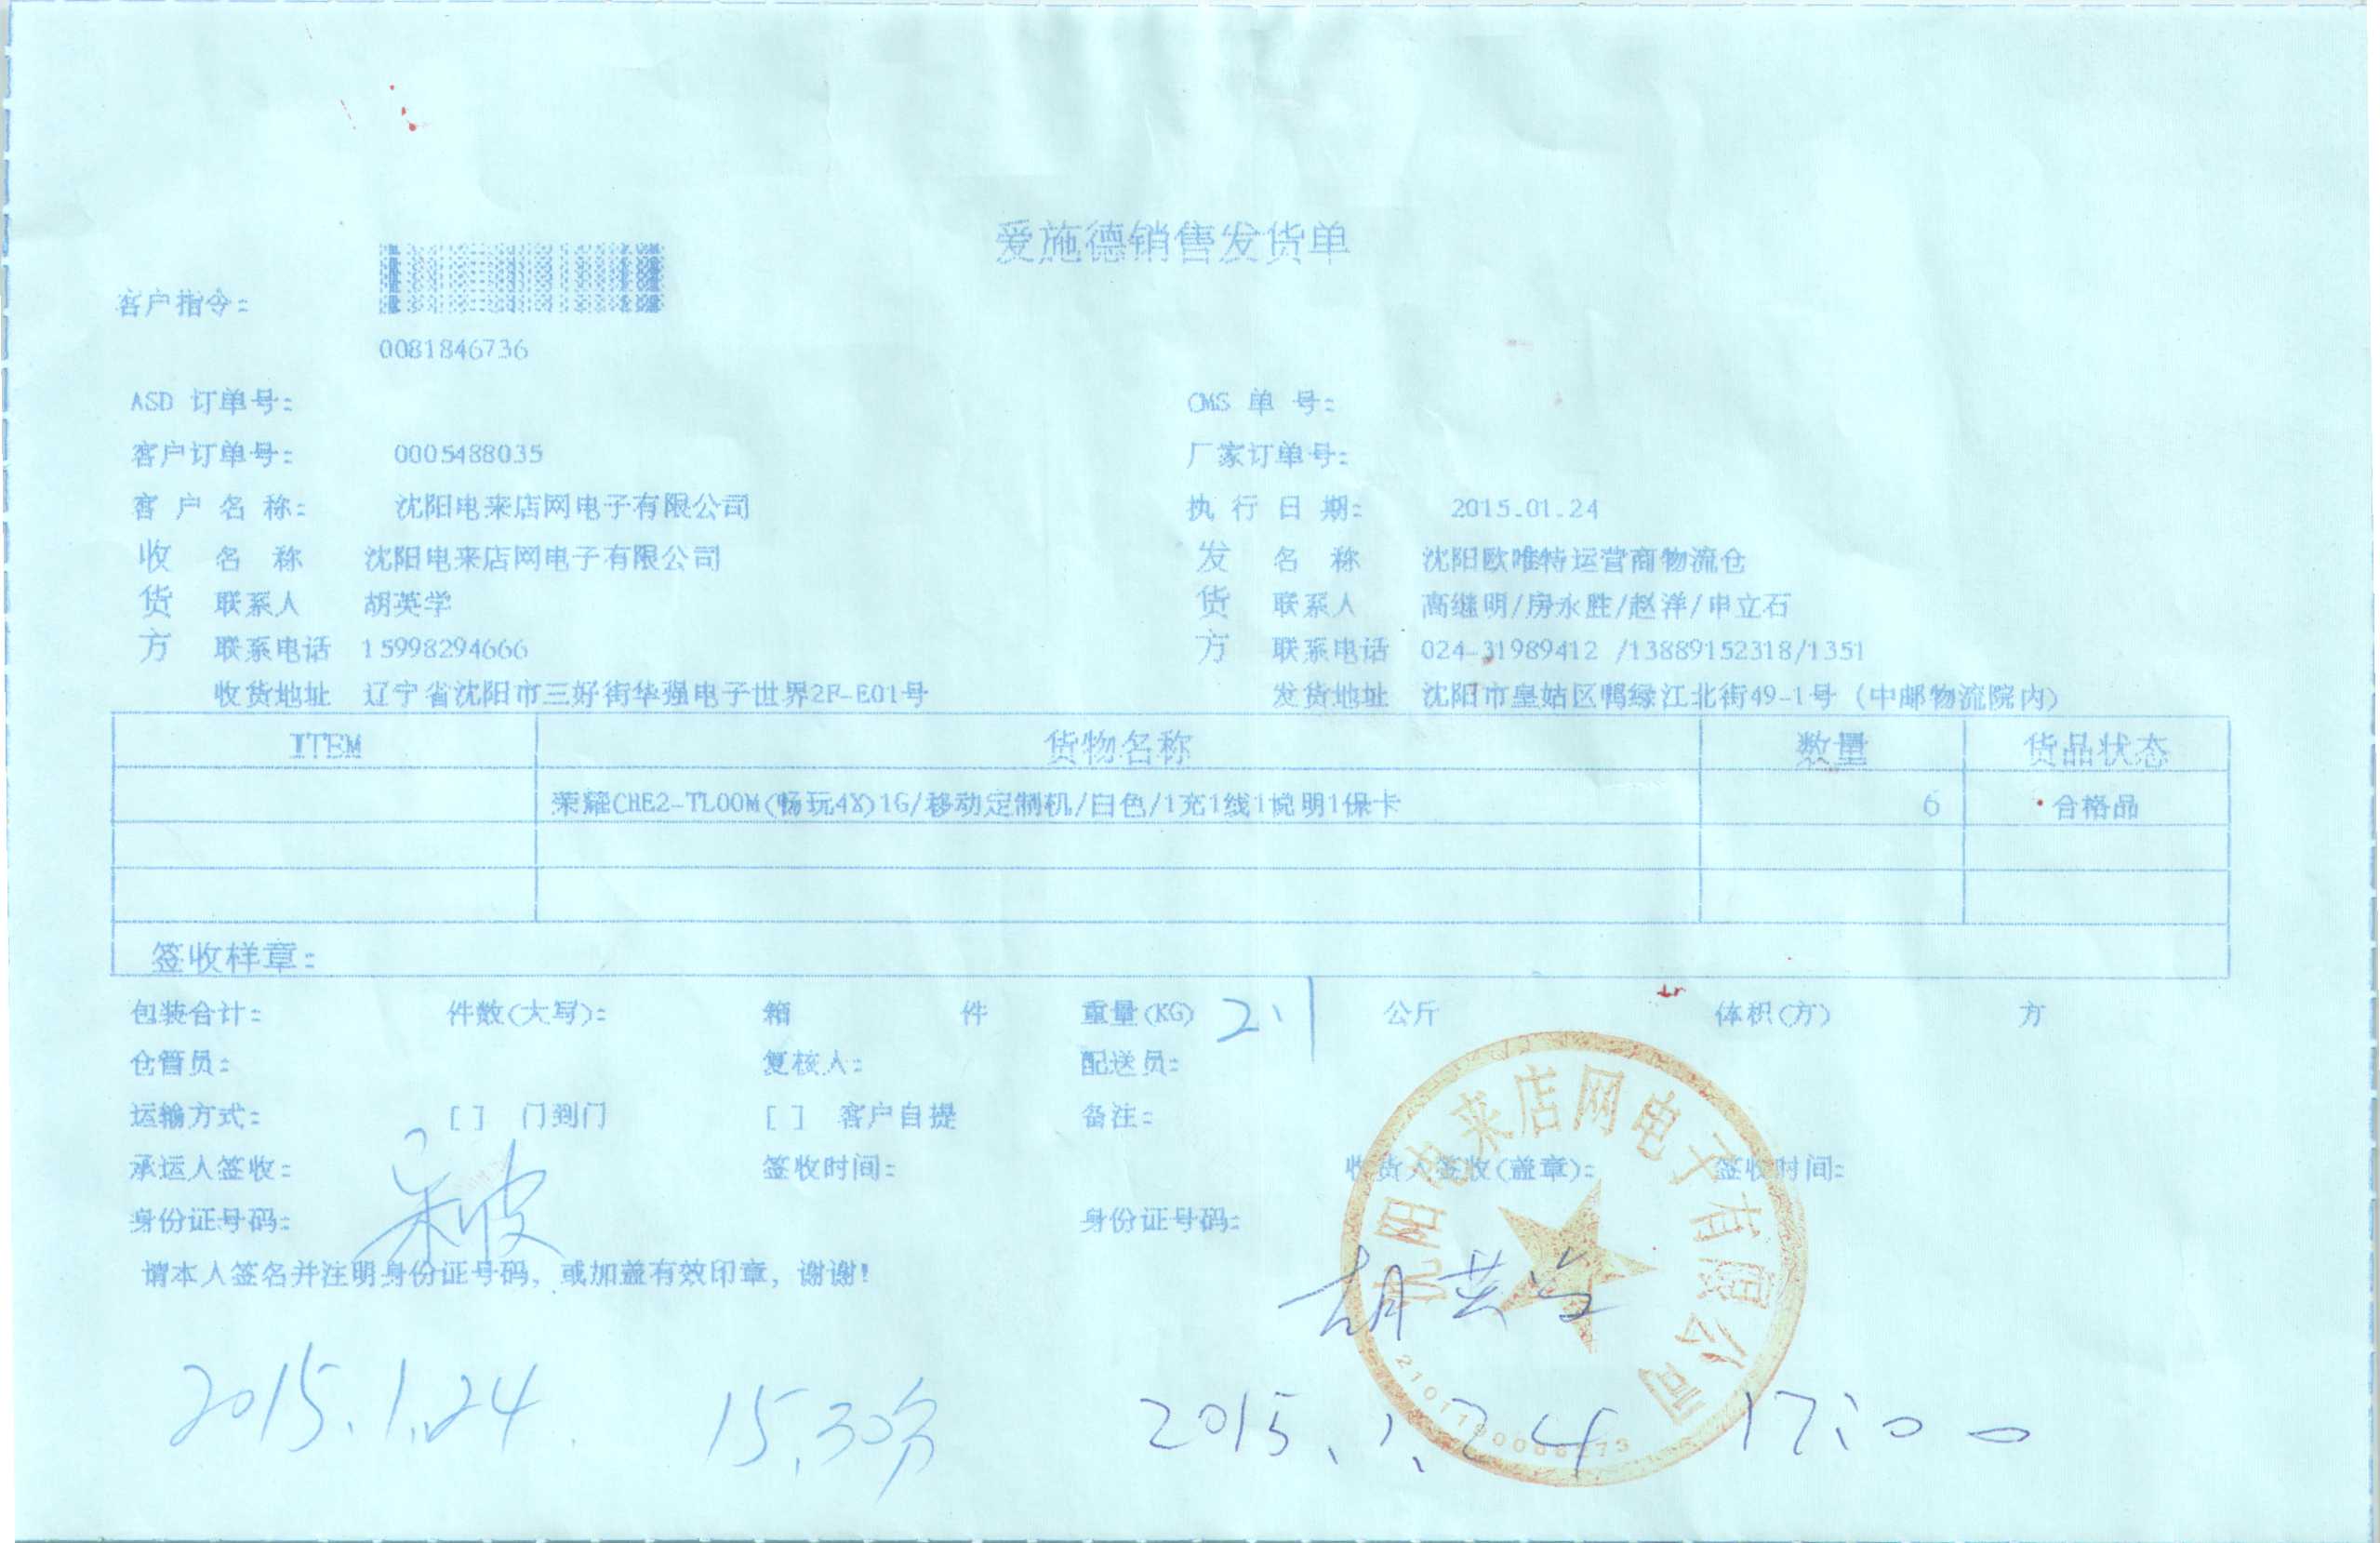 爱施德销售发货单
客户指令:
0081846736
ASD 订单号: CMS 单 号:
客户订单号: 0005488035 厂家订单号:
客 户 名 称: 沈阳电来店网电子有限公司 执 行 日 期: 2015.01.24
收 名 称 沈阳电来店网电子有限公司 发 名 称 沈阳欧唯特运营商物流仓
货 联系人 胡英学 货 联系人 高继明/房永胜/赵洋/申立石
方 联系电话 15998294666 方 联系电话 024-31989412 /13889152318/1351
收货地址 辽宁省沈阳市三好街华强电子世界2F-E01号 发货地址 沈阳市皇姑区鸭绿江北街49-1号 (中邮物流院内)
ITEM 货物名称 数量 货品状态
荣耀CHE2-TL00M(畅玩4X)1G/移动定制机/白色/1充1线1说明1保卡 6 合格品
签收样章:
包装合计: 件数(大写): 箱 件 重量(KG) 2.1 公斤 体积(方) 方
仓管员: 复核人: 配送员:
运输方式: [ ] 门到门 [ ] 客户自提 备注:
承运人签收: 签收时间: 收货人签收(盖章): 签收时间:
身份证号码: 身份证号码:
请本人签名并注明身份证号码, 或加盖有效印章, 谢谢!
沈阳电来店网电子有限公司
胡英学
2015.1.24 15.30分 2015.1.24 17:00